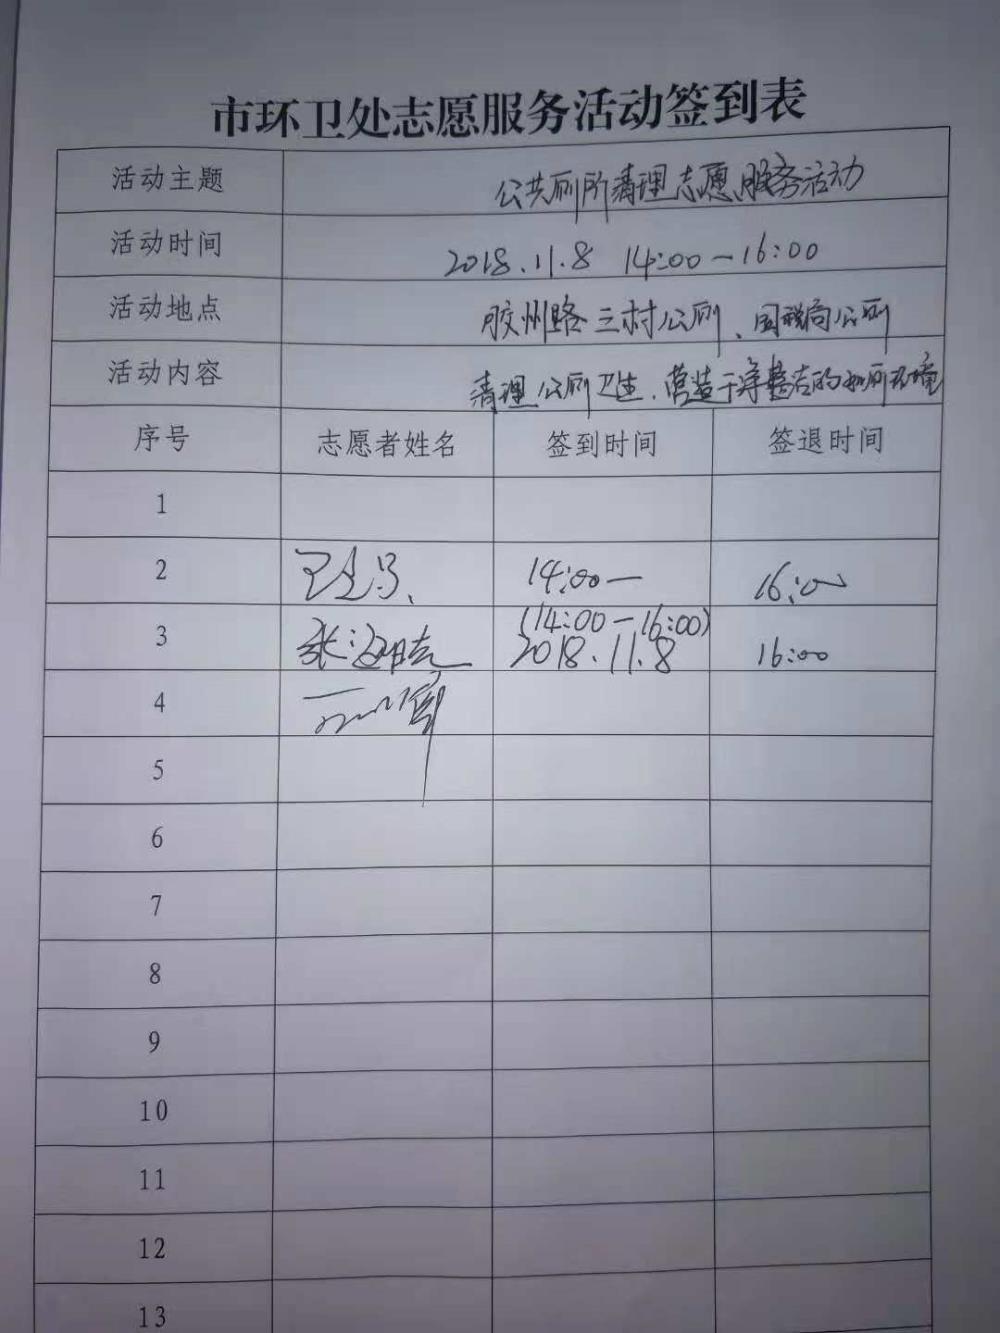 市环卫处志愿服务活动签到表
活动主题 公共厕所清理志愿服务活动
活动时间 2018.11.8 14:00—16:00
活动地点 胶州路三村公厕、国税局公厕
活动内容 清理公厕卫生,营造干净整洁的如厕环境
序号 志愿者姓名 签到时间 签退时间
1
2 14:00— 16:00
(14:00—16:00)
3 张 2018.11.8 16:00
4
5
6
7
8
9
10
11
12
13